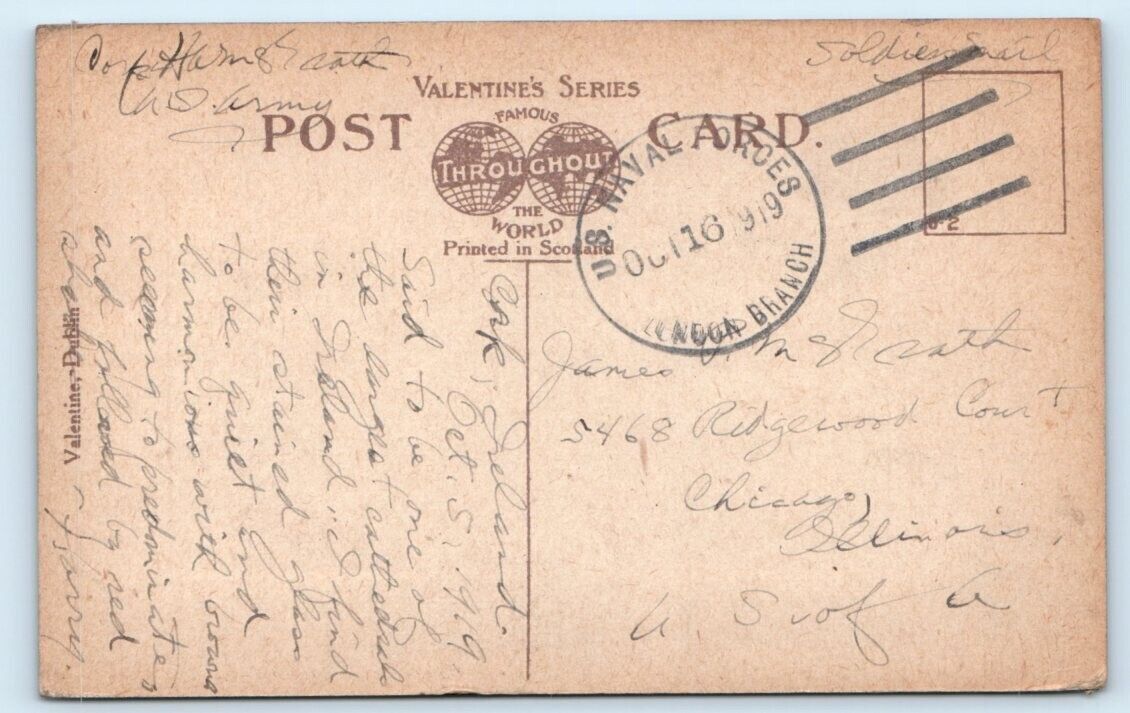 Soldiers Mail
U.S. Army
VALENTINE'S SERIES
POST CARD.
FAMOUS
THROUGHOUT
THE
WORLD
Printed in Scotland
U.S. NAVAL FORCES
OCT 16 1919
LONDON BRANCH
James J. McGrath
5468 Ridgewood Court
Chicago,
Illinois,
U S of A
Cork, Ireland.
Oct. 5, 1919.
Said to be one of
the largest cathedrals
in Ireland. I find
their stained glass
to be quiet and
harmonious with browns
seeming to predominate,
and followed by red
Harry.
Valentine, Dublin